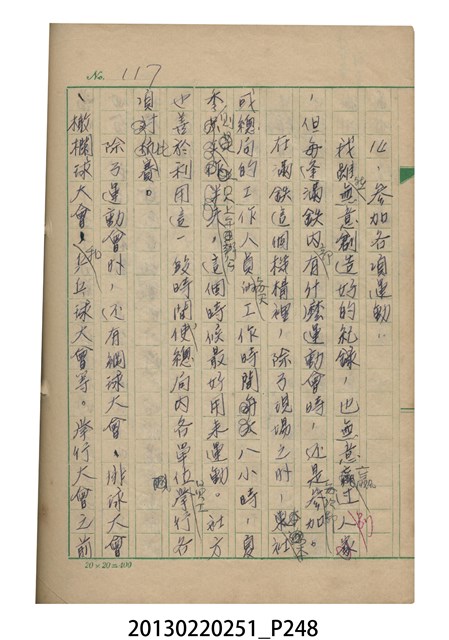 No. 117
14. 參加各項運動：
我雖無意創造好的紀錄，也無意贏過人家
，但每逢滿鉄內部有什麼運動會時，還是參加。
在滿鉄這個機構裡，除了現場之外，
或總局的工作人員的工作時間每天八小時，夏
季，這個時候最好用來運動。社方
也善於利用這一段時間使總局內各單位舉行各
項對抗賽。
除了運動會外，还有網球大會、排球大會
、橄欖球大會，乒乓球大會等。舉行大會之前
20×20=400
20130220251_P248